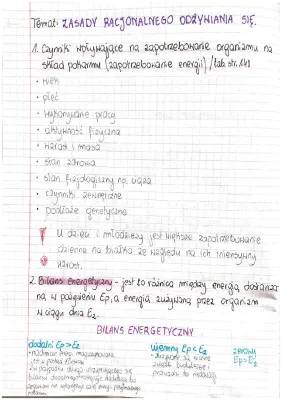 Temat: ZASADY RACJONALNEGO ODŻYWIANIA SIĘ.
1. Czynniki wpływające na zapotrzebowanie organizmu na
skład pokarmu (zapotrzebowanie energii) /tab str. 141
• wiek
• płeć
• wykonywana praca
• aktywność fizyczna
• wzrost i masa
• stan zdrowia
• stan fizjologiczny np. ciąża
• czynniki zewnętrzne
• podłoże genetyczne
U dzieci i młodzieży jest większe zapotrzebowanie
dzienne na białka ze względu na ich intensywny
wzrost.
2. Bilans energetyczny - jest to różnica między energią dostarczo
ną w pożywieniu Ep, a energią zużywaną przez organizm
w ciągu dnia Ez.
BILANS ENERGETYCZNY
dodatni Ep>Ez
ujemny Ep<Ez
zerowy
Ep=Ez